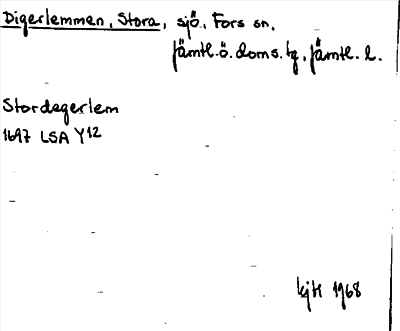 Digerlemmen, Stora, sjö, Fors sn,
Jämtl. ö. doms. tg, Jämtl. l.
Stordegerlem
1697 LSA Y12
1968